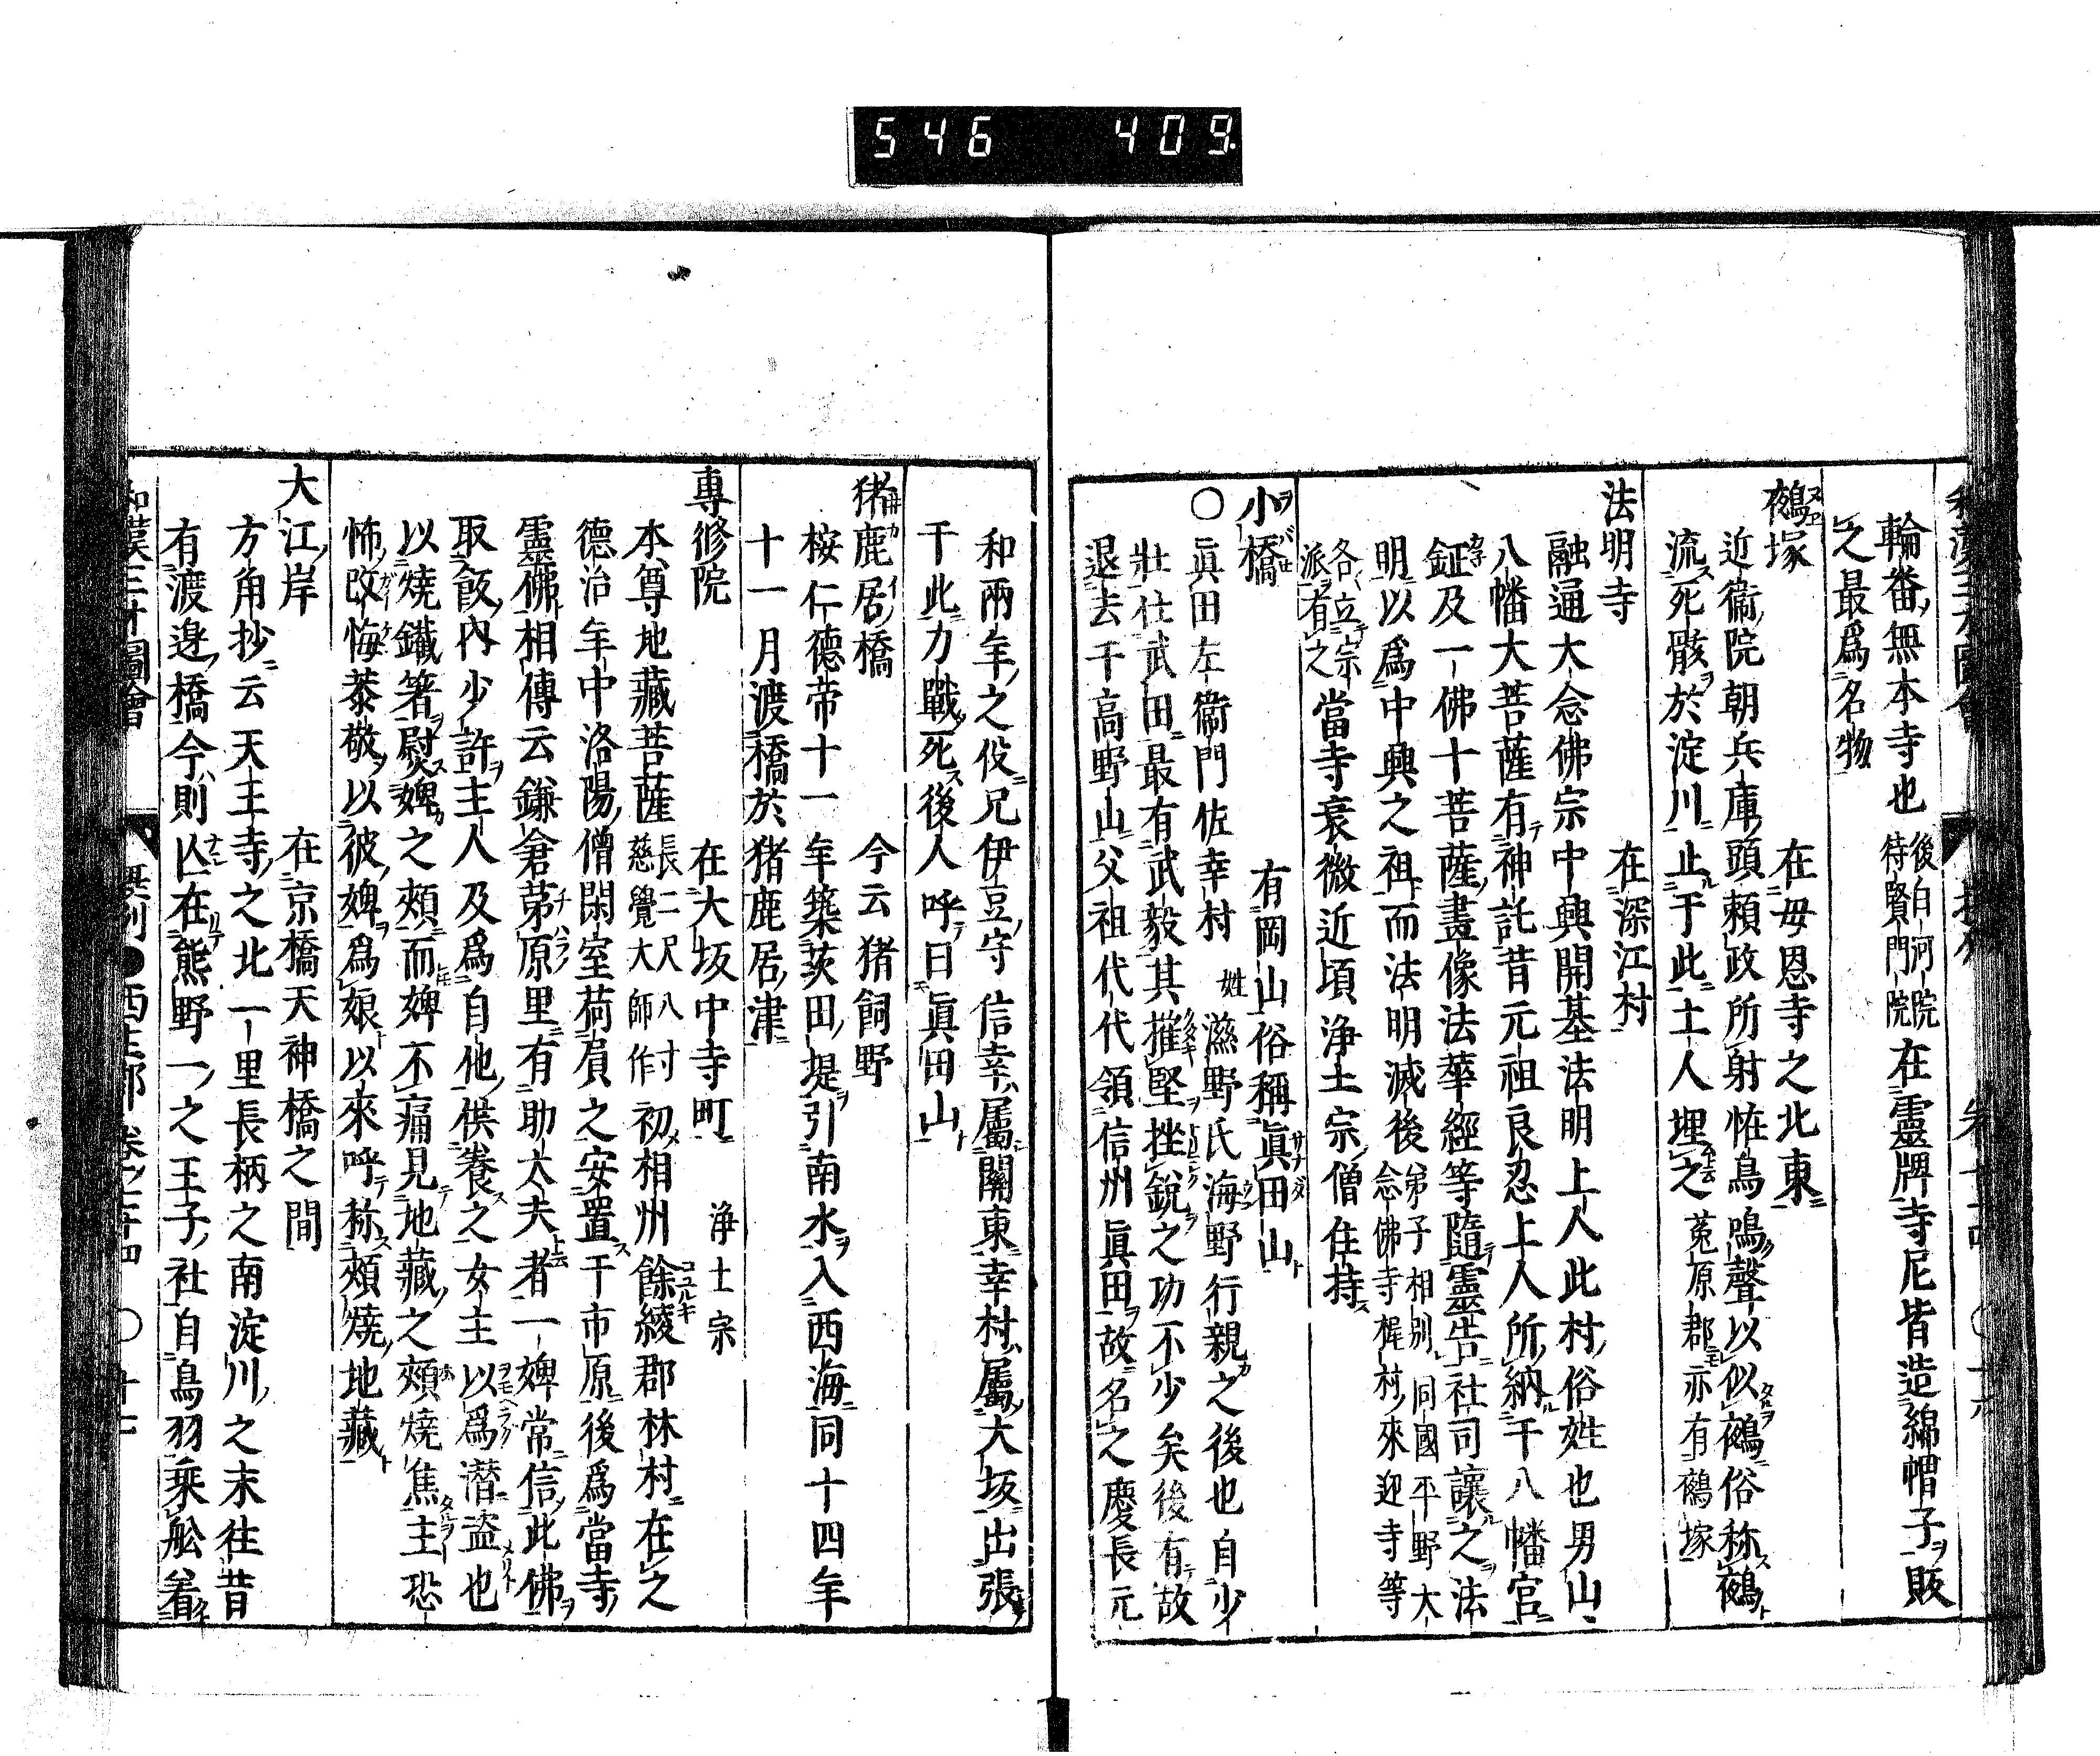 546 409
輪番無本寺也 後白河院 待賢門院 在靈牌寺尼皆造綿帽子販
之最爲名物
鵺塚 在母恩寺之北東
近衞院朝兵庫頭頼政所射恠鳥鳴聲以似鵺俗称鵺
流死骸於淀川止于此土人埋之 菟原郡亦有鵺塚
法明寺 在深江村
融通大念佛宗中興開基法明上人此村俗姓也男山
八幡大菩薩有神託昔元祖良忍上人所納于八幡宮
鉦及一佛十菩薩畫像法華經等隨靈告社司讓之法
明以爲中興之祖而法明滅後 弟子相別同國平野大念佛寺梶村來迎寺等
各立宗派有之 當寺衰微近頃浄土宗僧住持
小橋 有岡山俗稱眞田山
○眞田左衞門佐幸村 姓滋野氏海野行親之後也自少
壯仕武田最有武毅其摧堅挫鋭之功不少矣後有故
退去于高野山父祖代代領信州眞田故名之慶長元
和兩年之役兄伊豆守信幸屬關東幸村屬大坂出張
于此力戰死後人呼曰眞田山
猪鹿居橋 今云猪飼野
桉仁德帝十一年築茨田堤引南水入西海同十四年
十一月渡橋於猪鹿居津
專修院 在大坂中寺町 浄土宗
本尊地藏菩薩 長二尺八寸 慈覺大師作 初相州餘綾郡林村在之
德治年中洛陽僧閑室荷負之安置于市原後爲當寺
靈佛相傳云鎌倉茅原里有助太夫者一婢常信此佛
取飯內少許主人及爲自他供養之女主以爲潜盗也
以燒鐵箸熨婢之頰而婢不痛見地藏之頰燒焦主恐
怖改悔恭敬以彼婢爲娘以來呼称頰燒地藏
大江岸 在京橋天神橋之間
方角抄云天王寺之北一里長柄之南淀川之末往昔
有渡邉橋今則亾在熊野一之王子社自鳥羽乗舩着